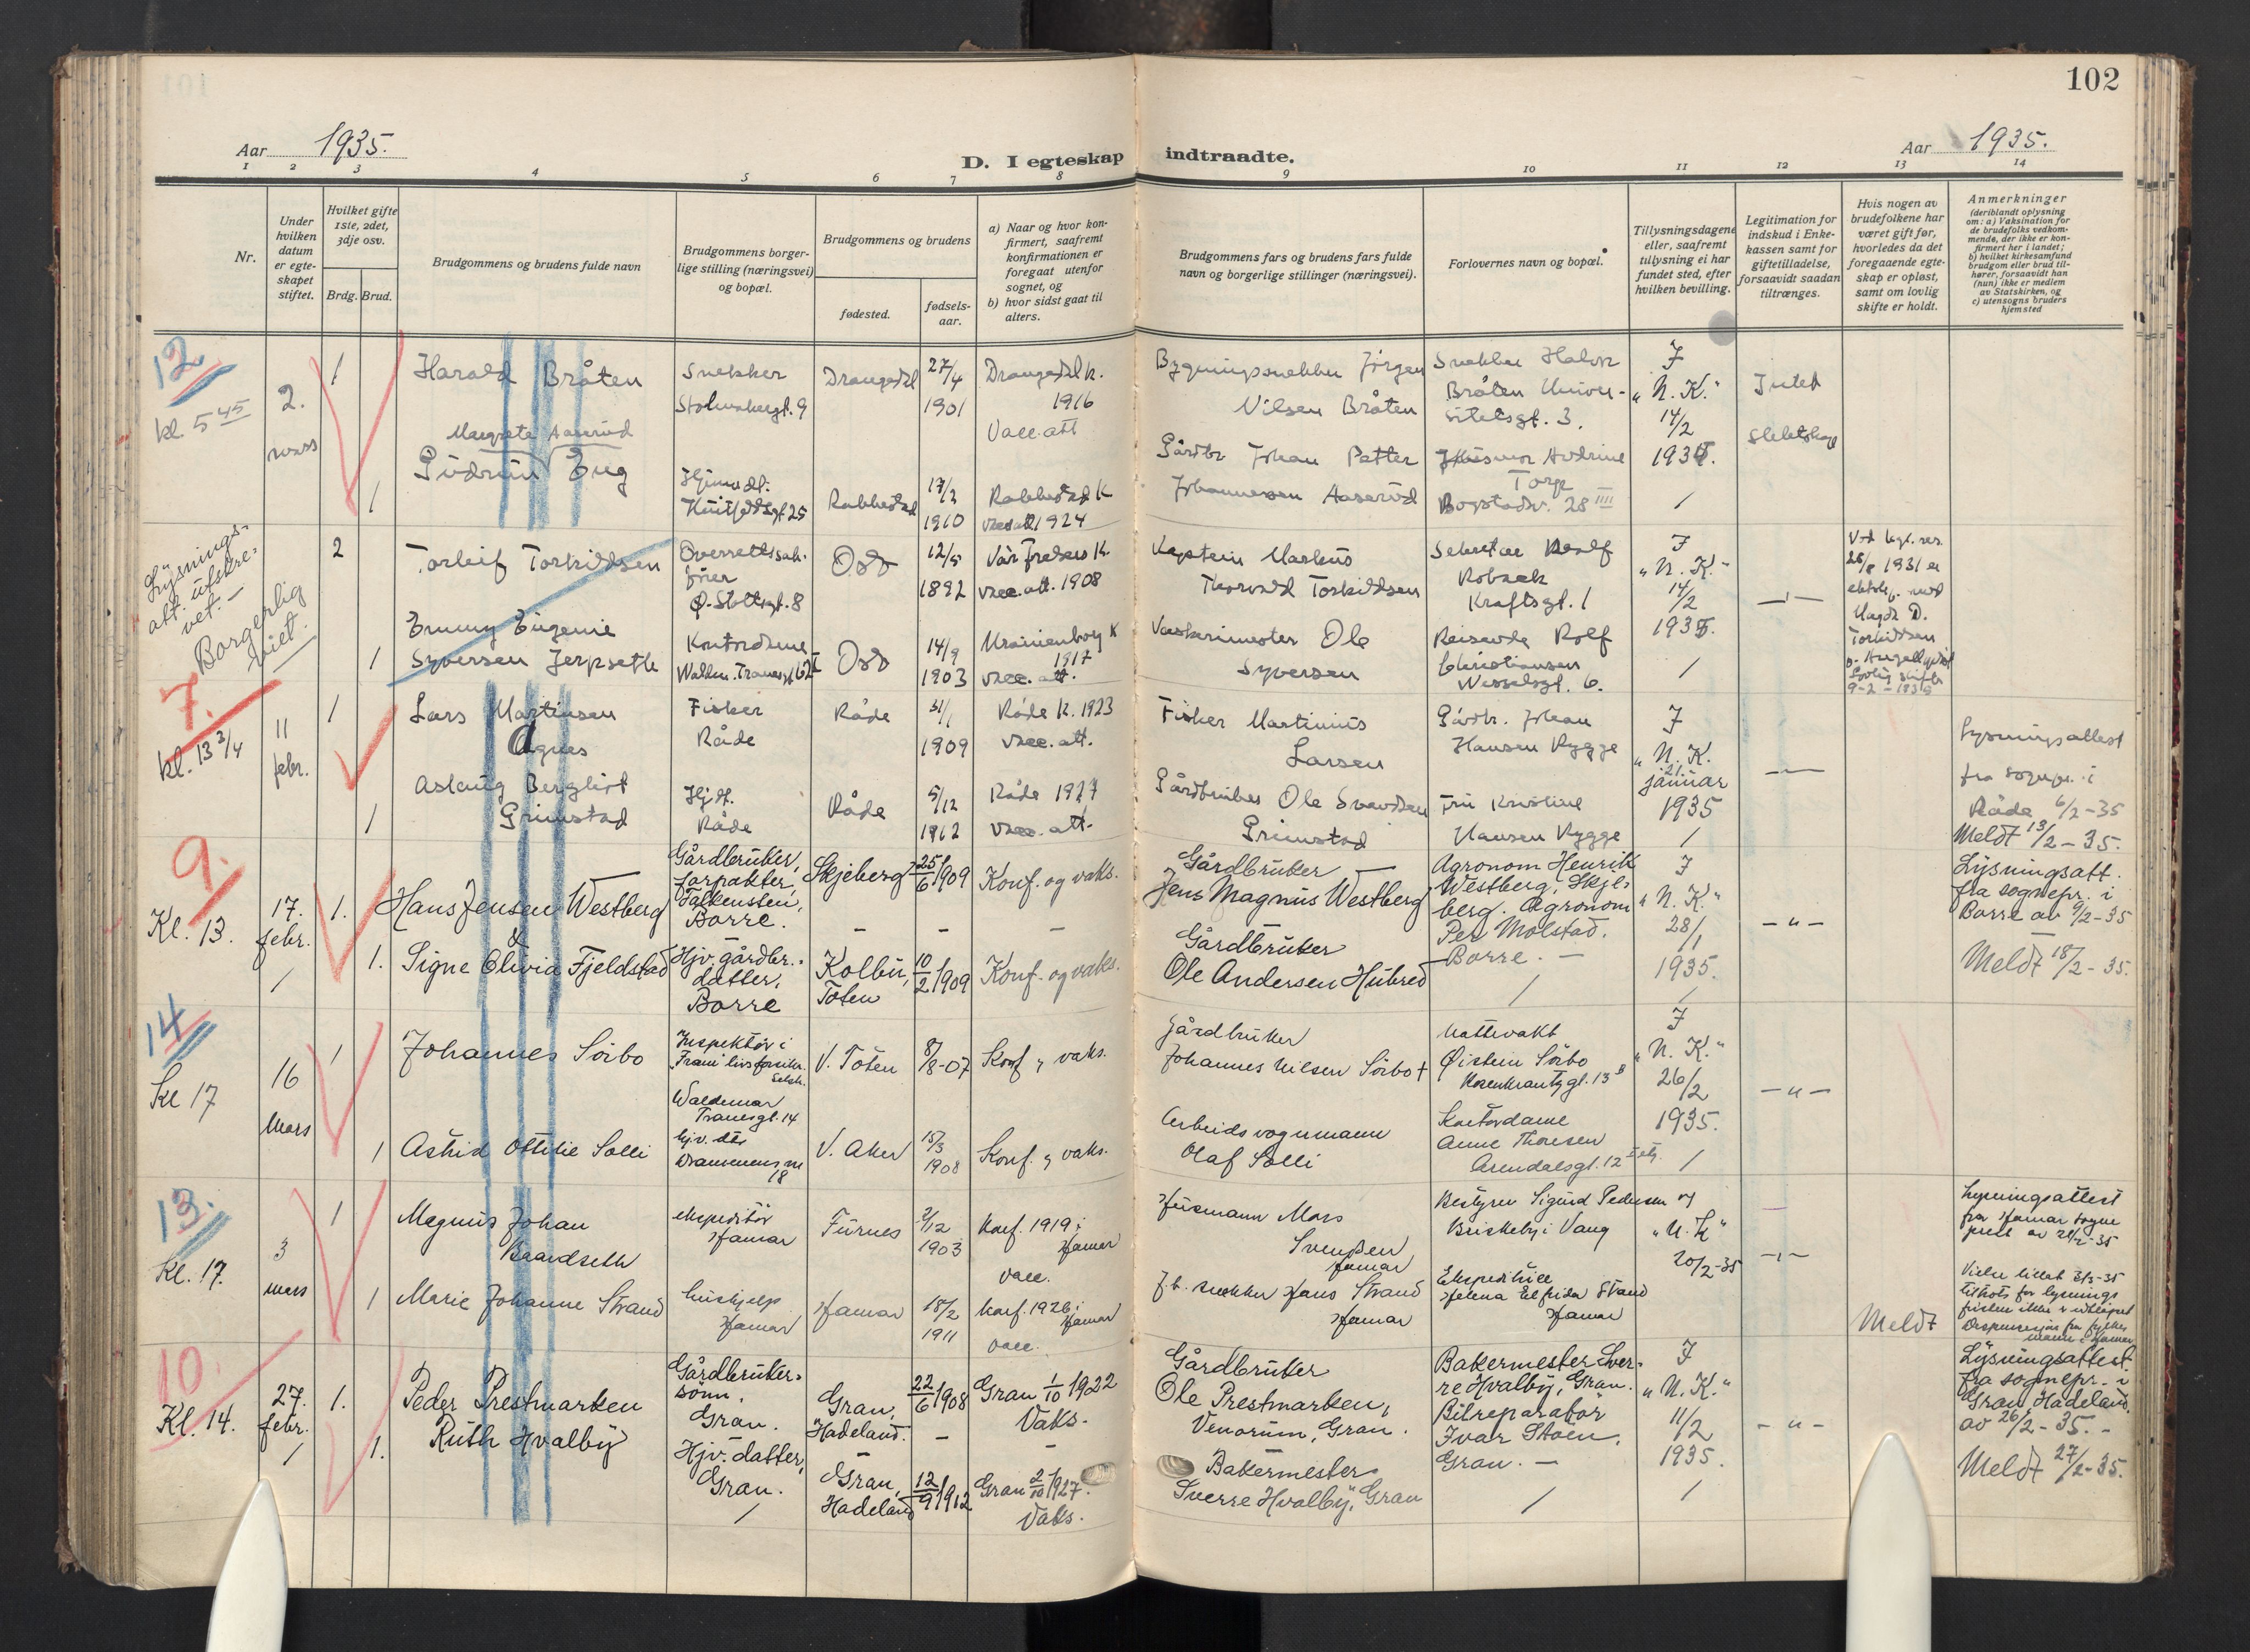 102
Aar 1935.
D. I egteskap indtraadte.
Aar 1935.
1 2 3 4 5 6 7 8 9 10 11 12 13 14
Nr.
Under
hvilken
datum
er egte-
skapet
stiftet.
Hvilket gifte
1ste, 2det,
3dje osv.
Brdg. Brud.
Brudgommens og brudens fulde navn
Brudgommens borger-
lige stilling (næringsvei)
og bopæl.
Brudgommens og brudens
fødested.
fødsels-
aar.
a) Naar og hvor kon-
firmert, saafremt
konfirmationen er
foregaat utenfor
sognet, og
b) hvor sidst gaat til
alters.
Brudgommens fars og brudens fars fulde
navn og borgerlige stillinger (næringsvei).
Forlovernes navn og bopæl.
Tillysningsdagene
eller, saafremt
tillysning ei har
fundet sted, efter
hvilken bevilling.
Legitimation for
indskud i Enke-
kassen samt for
giftetilladelse,
forsaavidt saadan
tiltrænges.
Hvis nogen av
brudefolkene har
været gift før,
hvorledes da det
foregaaende egte-
skap er opløst,
samt om lovlig
skifte er holdt.
Anmerkninger
(deriblandt oplysning
om: a) Vaksination for
de brudefolks vedkom-
mende, der ikke er kon-
firmert her i landet;
b) hvilket kirkesamfund
brudgom eller brud til-
hører, forsaavidt han
(hun) ikke er medlem
av Statskirken, og
c) utensogns bruders
hjemsted
12
kl. 5 45
2.
mars
1
Harald Bråten
Snekker
Stolmakergt. 9
Drangedal
27/4
1901
Drangedal k.
1916
Vacc. att
Bygningssnekker Jørgen
Nilsen Bråten
Snekker Halvor
Bråten Univer-
sitetsgt. 3.
I
"N. K."
14/2
1935.
Intet
slektskap
1
Margrete Aaserud
Gudrun Eug
Hjemmed.
Huitfeldtsgt 25
Rakkestad
17/3
1910
Rakkestad K
vacc att 1924
Gårdbr Johan Petter
Johannesen Aaserud
Husmor Andrine
Torp
Bogstadv. 28 IIII
Lysnings-
att. utskre-
vet. -
Borgerlig
viet.
2
Torleif Torkildsen
Overrettssak-
fører
Ø. Slottsgt. 8
Oslo
12/5
1892
Vår Frelsers K.
vacc. att. 1908
Kaptein Markus
Thorvald Torkildsen
Sekretær Rolf
Robsak
Kraftsgt. 1
I
"N. K."
14/2
1935.
Ved kgl. res.
26/8 1931 er
ekteskap. med
Magda D.
Torkildsen
Lovlig skifte
1
Emmy Eugenie
Syversen Jerpseth
Kontordame
Waldem. Tranesgt 62
Oslo
14/9
1903
Uranienborg K
1917
vacc. att.
Vaskerimester Ole
Syversen
Reisende Rolf
Christiansen
Wesselsgt. 6.
7.
kl. 13 3/4
11
febr.
1
Lars Martinsen
Fisker
Råde
Råde
31/1
1909
Råde K. 1923
vacc. att.
Fisker Martinius
Larsen
Gårdbr. Johan
Hansen Rygge
I
"N. K.
21.
januar
1935
Lysningsattest
fra sognepr. i
Råde 6/2-35
Meldt 13/2-35.
1
Agnes
Aslaug Bergliot
Grimstad
Hjdt.
Råde
Råde
5/12
1912
Råde 1927
vacc. att.
Gårdbruker Ole Svendsen
Grimstad
Fru Kristine
Hansen Rygge
9.
Kl. 13.
17.
febr.
1.
Hans Jensen Westberg
&
Gårdbruker,
forpakter,
Falkensten,
Borre.
Skjeberg
25/6 1909
Konf. og vaks.
Gårdbruker
Jens Magnus Westberg
Agronom Henrik
Westberg, Skje-
berg. Agronom
Per Molstad.
Borre. -
I
"N. K."
28/1
1935.
- " -
Lysningsatt.
fra sognepr. i
Borre av 9/2-35
Meldt 18/2-35.
1.
Signe Olivia Fjeldstad
Hjv. gårdbr.-
datter,
Borre
Kolbu,
Toten
10/2 1909
Konf. og vaks.
Gårdbruker
Ole Andersen Hubred
14
Kl 17
16
Mars
1
Johannes Sörbo
Inspektör i
"Fram" livsforsikr.
Selsk.
Waldemar
Tranesgt. 14
V. Toten
8/8-07
Konf. og vaks.
Gårdbruker
Johannes Nilsen Sörbo +
Nattevakt
Øistein Sörbo
Rosenkrantzgt. 13 B
I
"N. K."
26/2
1935.
- " -
1
Astrid Ottilie Solli
hjv. dtr
Drammensvn
18
V. Aker
15/3
1908
Konf. og vaks.
Arbeidsvognmann
Olaf Solli
Kontordame
Anne Thoresen
Arendalsgt. 12
13.
Kl. 17.
3
mars
1
Magnus Johan
Baardseth
ekspeditör
Hamar
Furnes
2/12
1903
Konf. 1919 i
Hamar
vacc.
Husmann Mons
Svendsen
Hamar
Bestyrer Sigurd Pedersen
Briskeby i Vang
I
"N. K."
20/2-35
Lysningsattest
fra Hamar sogne
prest av 28/2-35
1
Marie Johanne Strand
hushjelp
Hamar
Hamar
18/2
1911
konf. 1926 i
Hamar
vacc.
f.h. snekker Hans Strand
Hamar
Ekspeditrice
Helena Elfrida Strand
Hamar
Meldt
10.
Kl. 14.
27.
febr.
1.
Peder Prestmarken
Gårdbruker-
sønn.
Gran.
Gran,
Hadeland.
22/6 1908
Gran 1/10 1922
Vaks.
Gårdbruker
Ole Prestmarken,
Venorum, Gran.
Bakermester Sver-
re Hvalby, Gran.
Bilreparatør
Ivar Støen,
Gran. -
I
"N. K."
11/2
1935.
- " -
Lysningsattest
fra sognepr. i
Gran, Hadeland,
av 26/2-35. -
Meldt 27/2-35.
1.
Ruth Hvalby
Hjv. datter,
Gran.
Gran,
Hadeland
12/9 1912
Gran 2/10 1927.
Vaks.
Bakermester
Sverre Hvalby, Gran